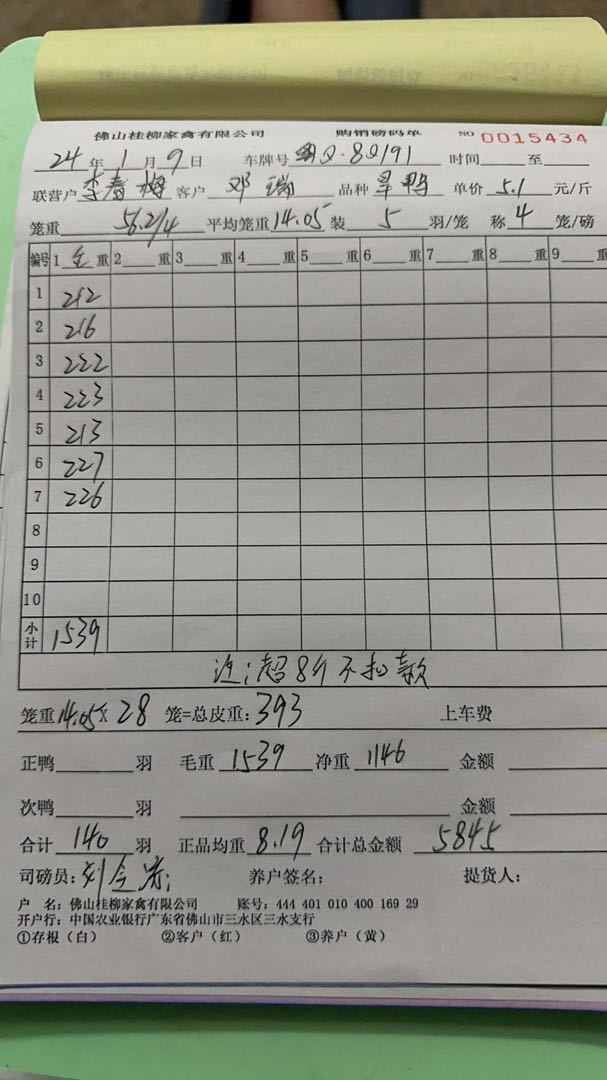 佛山桂柳家禽有限公司 购销磅码单 NO 0015434
24 年 1 月 9 日 车牌号 Q·8Q191 时间 至
联营户 李春梅 客户 邓瑞 品种 旱鸭 单价 5.1 元/斤
笼重 56.2/4 平均笼重 14.05 装 5 羽/笼 称 4 笼/磅
编号 1 全 重 2 重 3 重 4 重 5 重 6 重 7 重 8 重 9 重
1 212
2 216
3 222
4 223
5 213
6 227
7 226
8
9
10
小计 1539
注:超8斤不扣款
笼重 14.05 × 28 笼=总皮重: 393 上车费
正鸭 羽 毛重 1539 净重 1146 金额
次鸭 羽 金额
合计 140 羽 正品均重 8.19 合计总金额 5845
司磅员: 养户签名: 提货人:
户 名: 佛山桂柳家禽有限公司 账号: 444 401 010 400 169 29
开户行: 中国农业银行广东省佛山市三水区三水支行
①存根（白） ②客户（红） ③养户（黄）